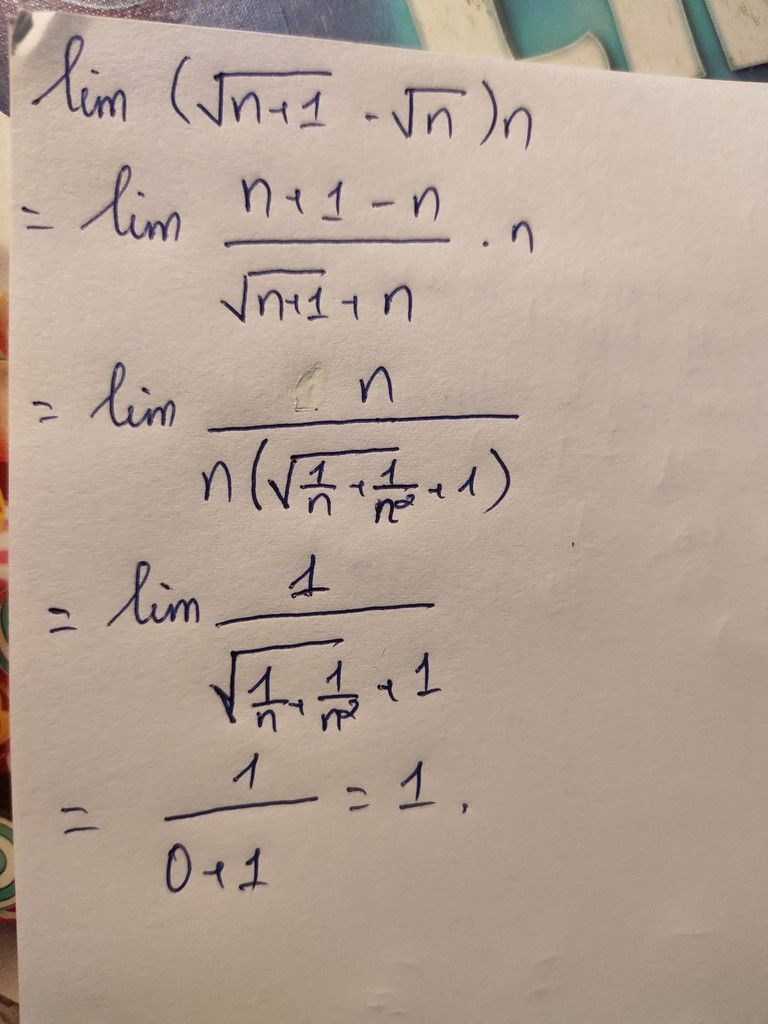 lim (√(n+1) - √n)n
= lim (n+1-n)/(√(n+1) + n) . n
= lim n/(n(√(1/n + 1/n²) + 1))
= lim 1/(√(1/n + 1/n²) + 1)
= 1/(0+1) = 1.